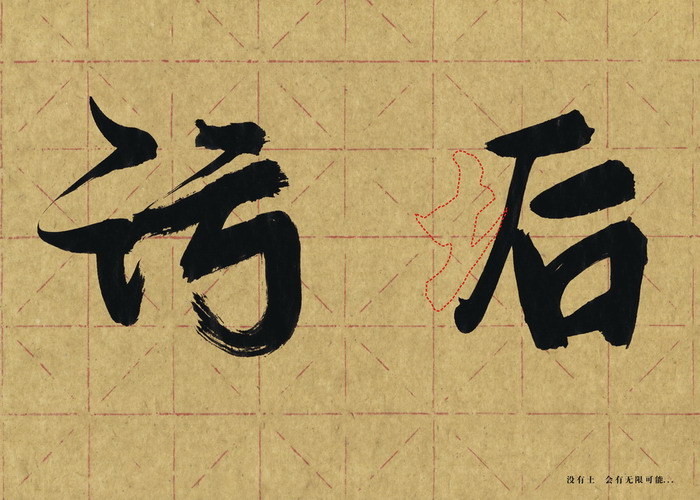 污后
没有土 会有无限可能...